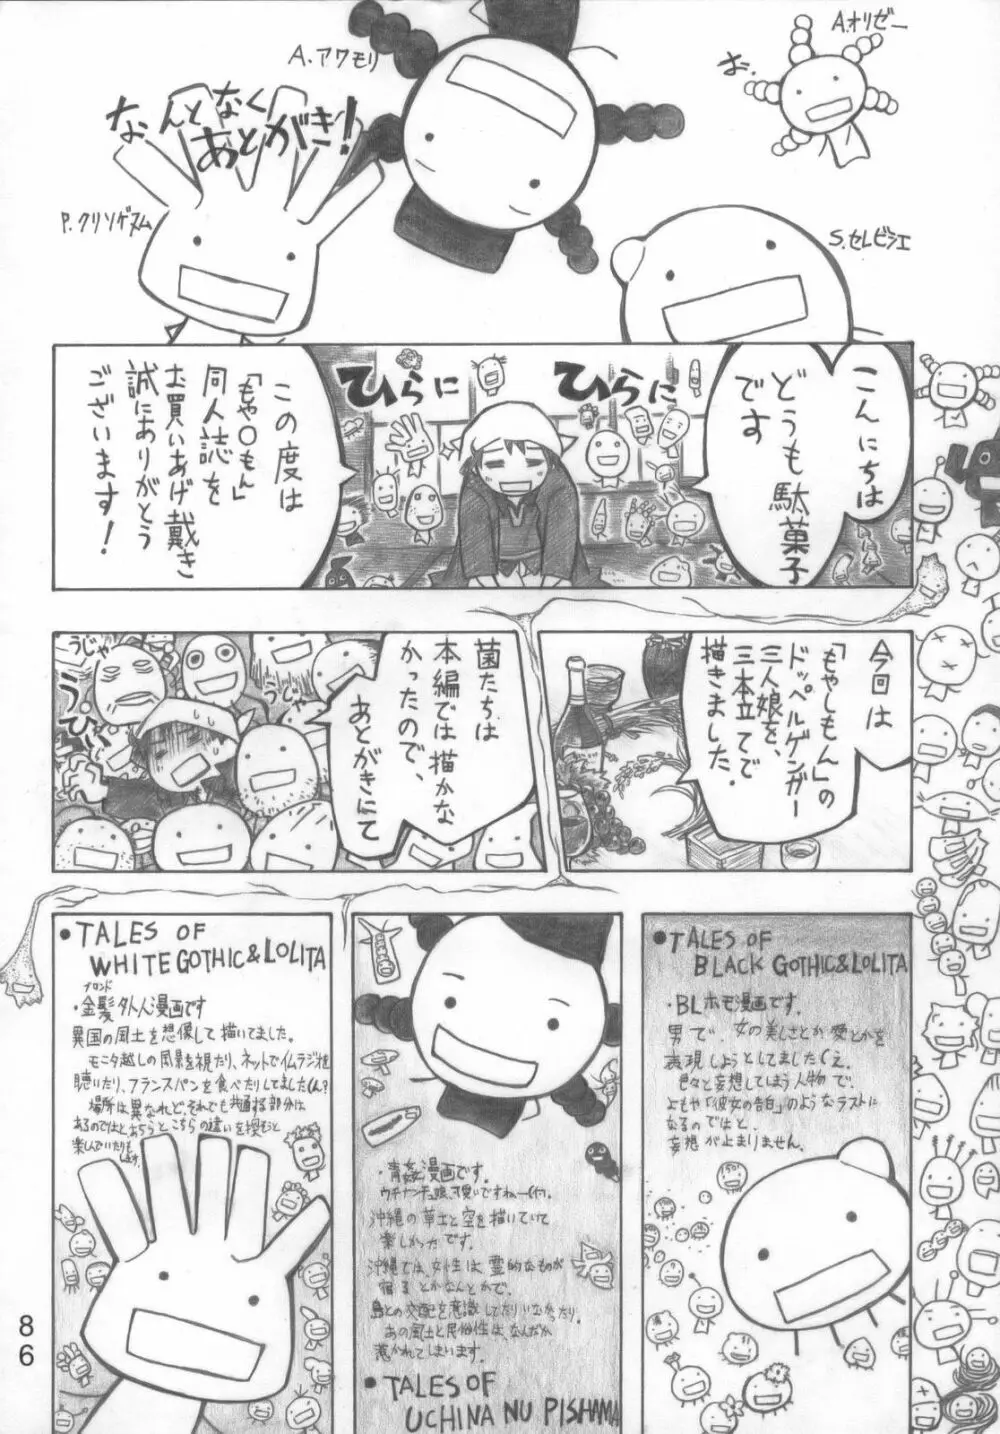 A.オリゼー
お。
A.アワモリ
なんとなく
あとがき!
P.クリソゲヌム
S.セレビシエ
こんにちは
どうも駄菓子
です
ひらに
ひらに
この度は
「もや〇もん」
同人誌を
お買いあげ戴き
誠にありがとう
ございます!
今回は
「もやしもん」の
ドッペルゲンガー
三人娘を、
三本立てで
描きました。
菌たちは
本編では描かな
かったので、
あとがきにて
うじゃ
うじゃ
う
ひぃ
●TALES OF
BLACK GOTHIC&LOLITA
・BLホモ漫画です。
男で、女の美しさとか愛とかを
表現しようとしてましたくえ。
色々と妄想してしまう人物で、
よもや「彼女の告白」のようなラストに
なるのではと、
妄想が止まりません。
・青姦漫画です。
沖縄の草土と空を描いていて
楽しかったです。
沖縄では、女性は霊的なものが
宿るとかなんとかで、
島との交配を意識してたりいなかったり。
あの風土と民俗性は、なんだか
惹かれてしまいます。
●TALES OF
UCHINA NU PISHAMA
●TALES OF
WHITE GOTHIC&LOLITA
ブロンド
・金髪外人漫画です
異国の風土を想像して描いてました。
モニタ越しの風景を視たり、ネットでイムラジオを
聴いたり、フランスパンを食べたりしてましたくん?
場所は異なれど、それでも共通する部分は
あるのではと、あちらとこちらの違いを
楽しんでいたりも
します。
86